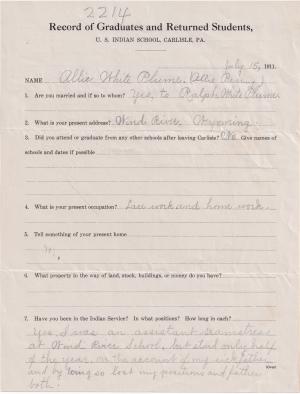 2214
Record of Graduates and Returned Students,
U. S. INDIAN SCHOOL, CARLISLE, PA.
July 15, 1911.
NAME Allie White Plume, (Allie
1. Are you married and if so to whom? Yes, to Ralph White Plume
2. What is your present address? Wind River Wyoming
3. Did you attend or graduate from any other schools after leaving Carlisle? Give names
of schools and dates if possible
4. What is your present occupation? Lace work and home work.
5. Tell something of your present home
6. What property in the way of land, stock, buildings, or money do you have?
7. Have you been in the Indian Service? In what positions? How long in each?
Yes, I was an assistant seamstress
at Wind River School, but staid only half
of the year, on the account of my sick father
and by doing so lost my positions and father
both.
(Over)